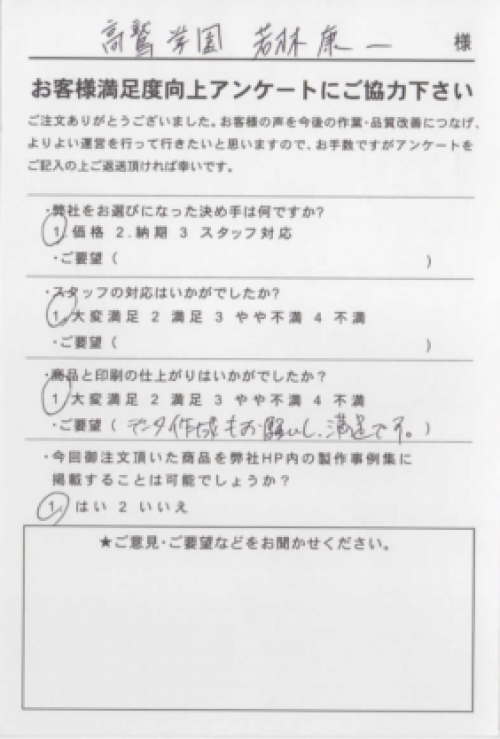 高鷲学園 若林康一 様
お客様満足度向上アンケートにご協力下さい
ご注文ありがとうございました。お客様の声を今後の作業・品質改善につなげ、
よりよい運営を行って行きたいと思いますので、お手数ですがアンケートを
ご記入の上ご返送頂ければ幸いです。
・弊社をお選びになった決め手は何ですか?
1.価格 2.納期 3 スタッフ対応
・ご要望( )
・スタッフの対応はいかがでしたか?
1.大変満足 2 満足 3 やや不満 4 不満
・ご要望( )
・商品と印刷の仕上がりはいかがでしたか?
1 大変満足 2 満足 3 やや不満 4 不満
・ご要望(データ作成もお願いし、満足です。)
・今回御注文頂いた商品を弊社HP内の製作事例集に
掲載することは可能でしょうか?
1. はい 2 いいえ
★ご意見・ご要望などをお聞かせください。